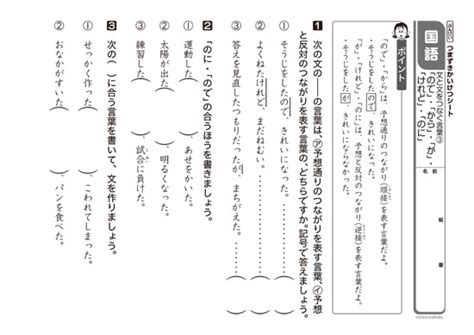 つまずきかいけつシート
国語
文と文をつなぐ言葉③
「ので」・「から」・「が」・
「けれど」・「のに」
名前
組
番
ポイント
「ので」、「から」は、予想通りのつながり(順接)を表す言葉だよ。
そうじをしたので、きれいになった。
「が」、「けれど」、「のに」は、予想と反対のつながり(逆接)を表す言葉だよ。
そうじをしたが、きれいにならなかった。
1 次の文の――の言葉は、㋐予想通りのつながりを表す言葉、㋑予想
と反対のつながりを表す言葉の、どちらですか。記号で答えましょう。
① そうじをしたので、きれいになった。……( )
② よくねたけれど、まだねむい。……( )
③ 答えを見直したつもりだったが、まちがえた。……( )
2 「のに」・「ので」の合うほうを書きましょう。
① 運動した( )、あせをかいた。
② 太陽が出た( )、明るくなった。
③ 練習した( )、試合に負けた。
3 次の( )に合う言葉を書いて、文を作りましょう。
① せっかく作った( )、こわれてしまった。
② おなかがすいた( )、パンを食べた。